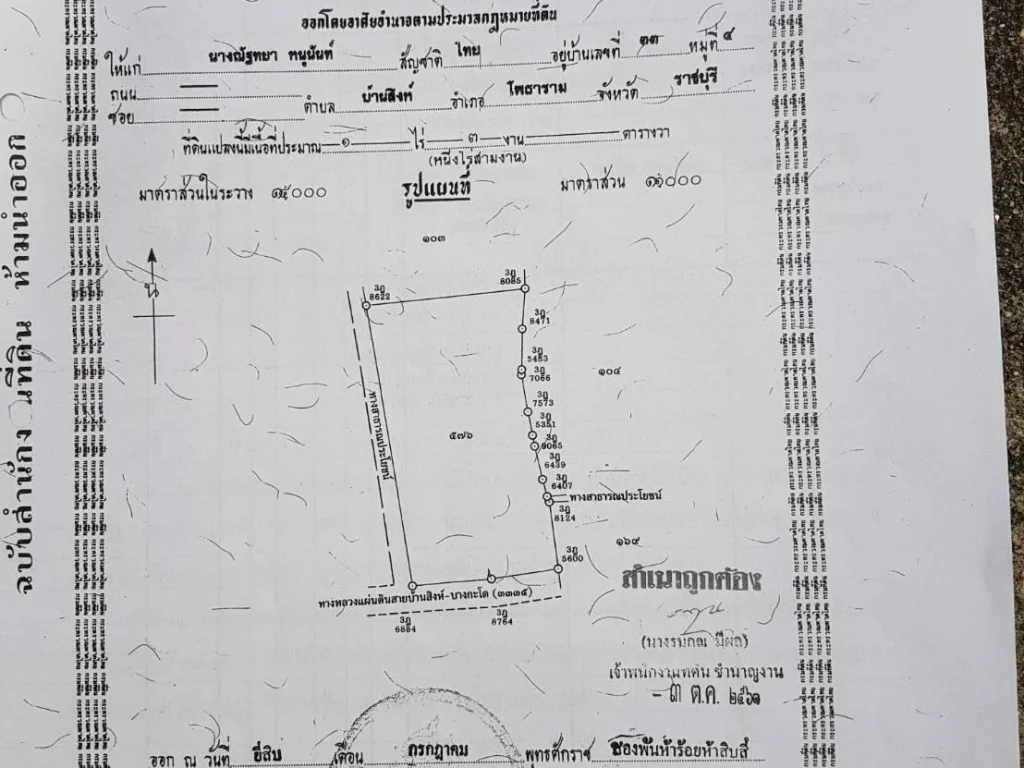 ฉบับสำนักงานที่ดิน ห้ามนำออก
ออกโดยอาศัยอำนาจตามประมวลกฎหมายที่ดิน
ให้แก่ นางณัฐทยา ทนุนันท์ สัญชาติ ไทย อยู่บ้านเลขที่ ๓๓ หมู่ที่ ๔
ถนน — ตำบล บ้านสิงห์ อำเภอ โพธาราม จังหวัด ราชบุรี
ซอย —
ที่ดินแปลงนี้มีเนื้อที่ประมาณ ๑ ไร่ ๓ งาน — ตารางวา
(หนึ่งไร่สามงาน)
มาตราส่วนในระวาง ๑:๕๐๐๐ รูปแผนที่ มาตราส่วน ๑:๑๐๐๐
๑๐๓
น
3ฎ 8622
3ฎ 8085
3ฎ 8471
3ฎ 5483
3ฎ 7066
๑๐๔
3ฎ 7573
3ฎ 5351
ทางสาธารณประโยชน์
๕๗๖
3ฎ 9065
3ฎ 6439
3ฎ 6407
ทางสาธารณประโยชน์
3ฎ 8124
๑๖๙
3ฎ 5600
ทางหลวงแผ่นดินสายบ้านสิงห์-บางกะโด (๓๓๓๕)
3ฎ 6884
3ฎ 8764
สำเนาถูกต้อง
เจ้าพนักงานที่ดินชำนาญงาน
- ๓ ต.ค. ๒๕๖๑
ออก ณ วันที่ ยี่สิบ เดือน กรกฎาคม พุทธศักราช สองพันห้าร้อยห้าสิบสี่